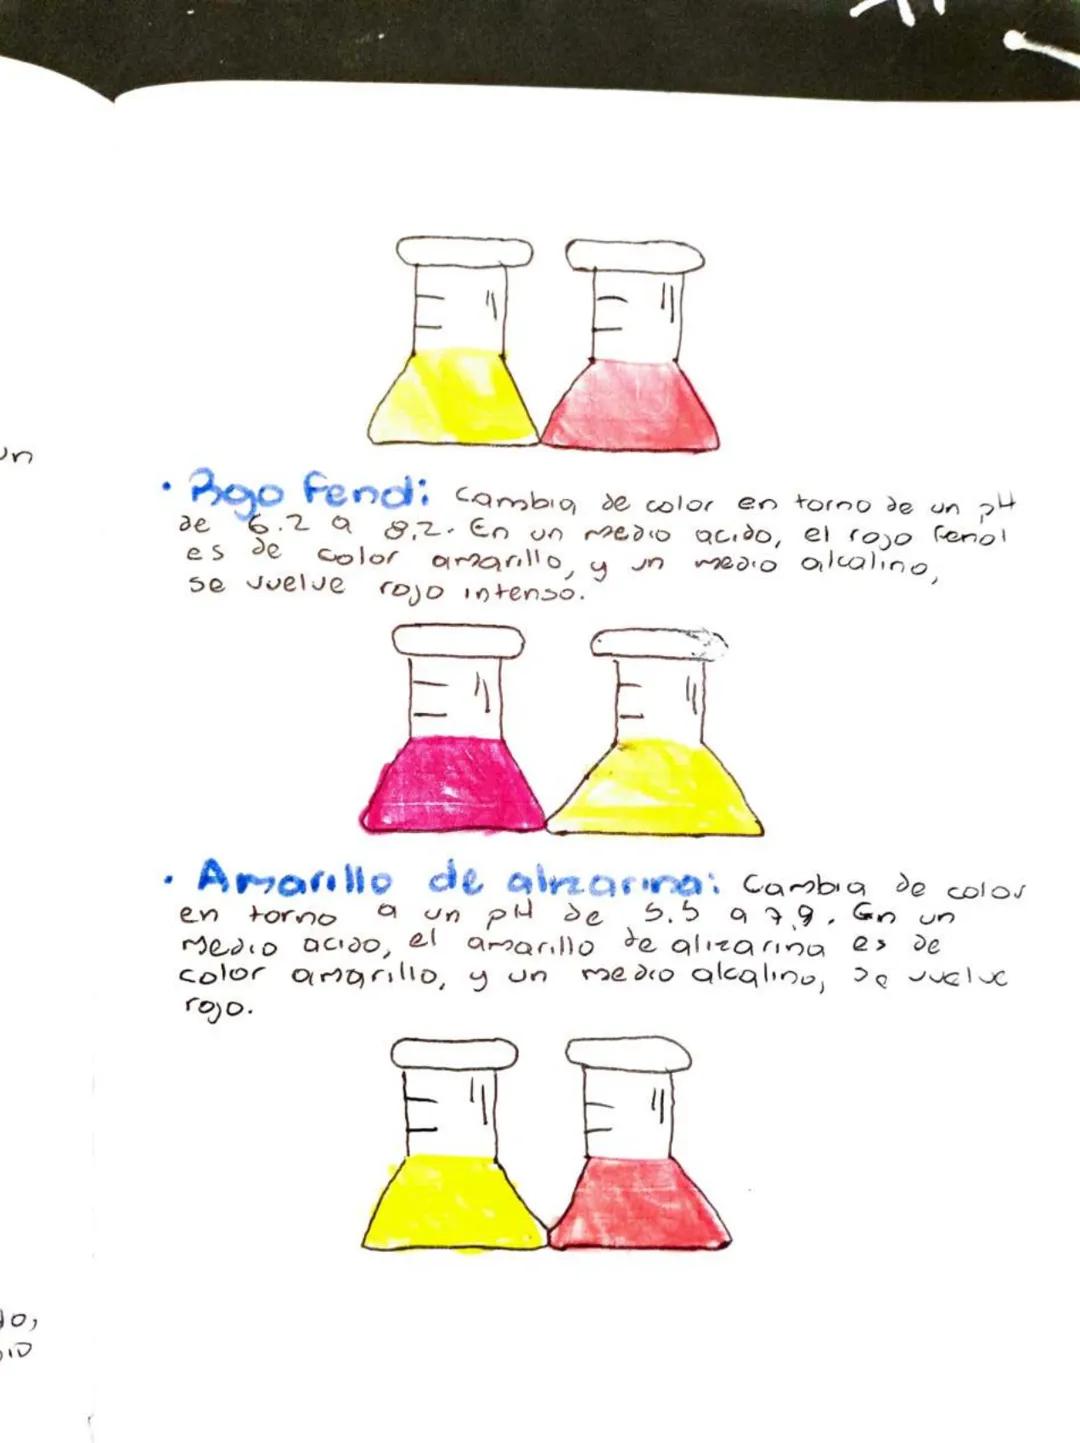 un
• Rojo Fenol: Cambia de color en torno de un pH
de 6.2 a 8,2. En un medio acido, el rojo fenol
es de color amarillo, y un medio alcalino,
se vuelve rojo intenso.
• Amarillo de alizarina: Cambia de color
en torno a un pH de 5.5 a 7,9. En un
medio acido, el amarillo de alizarina es de
color amarillo, y un medio alcalino, se vuelve
rojo.